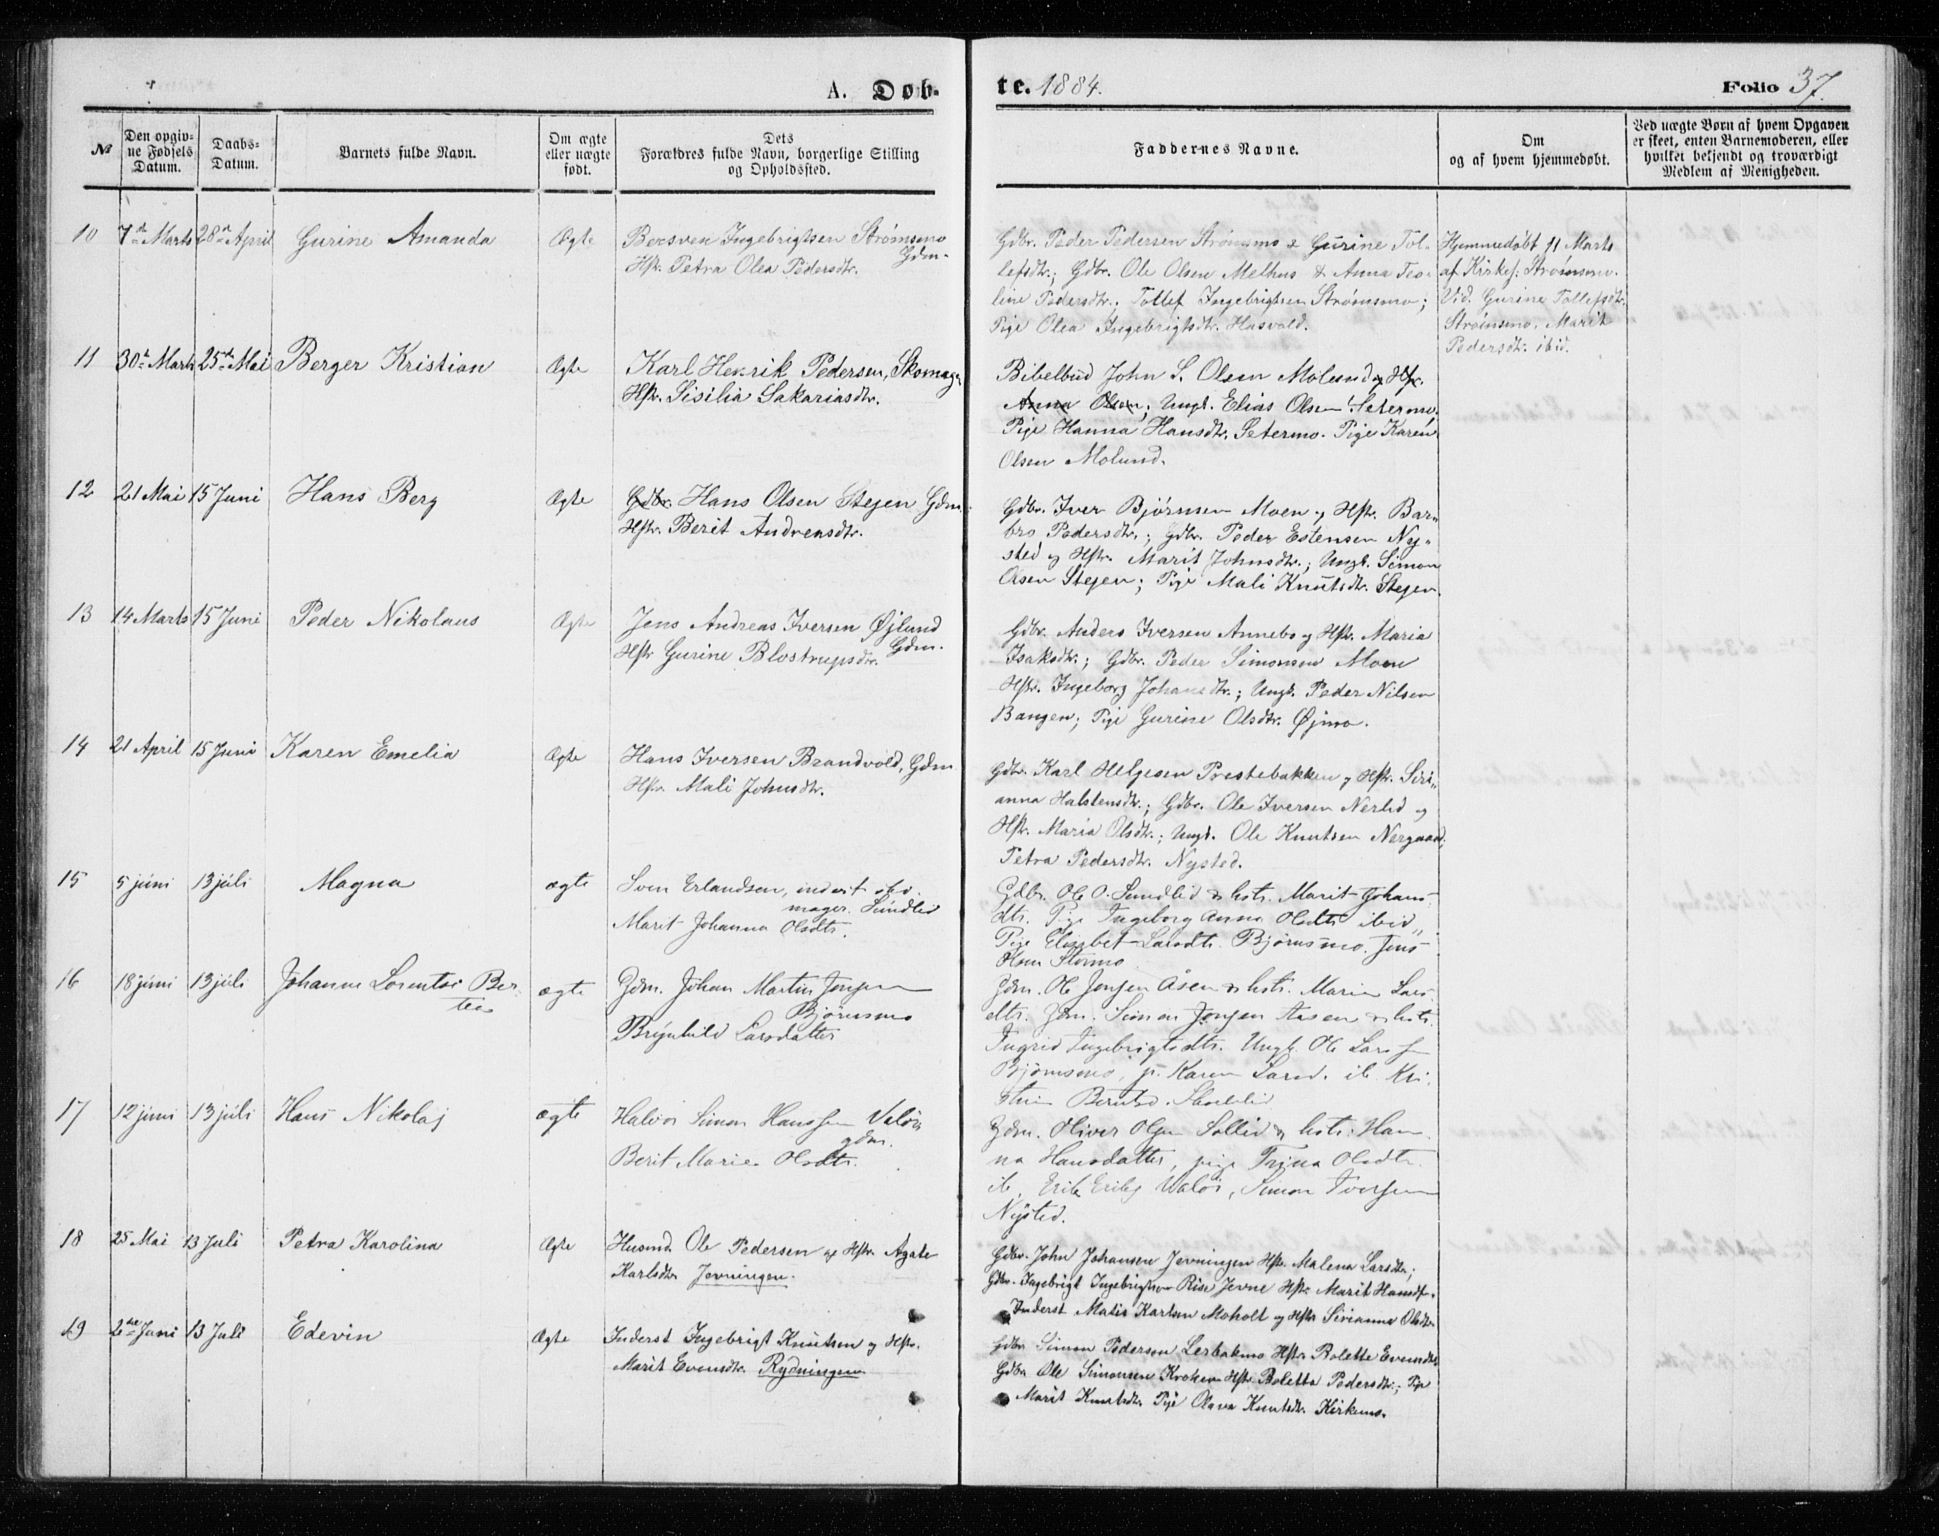 A. Døb-
te. 1884.
Folio 37.
№
Den opgiv-
ne Fødsels
Datum.
Daabs-
Datum.
Barnets fulde Navn.
Om ægte
eller uægte
født.
Dets
Forældres fulde Navn, borgerlige Stilling
og Opholdssted.
Faddernes Navne.
Om
og af hvem hjemmedøbt.
Ved uægte Børn af hvem Opgaven
er skeet, enten Barnemoderen, eller
hvilket bekjendt og troværdigt
Medlem af Menigheden.
10 7de Marts 28de April Gurine Amanda Ægte
Bersven Ingebrigtsen Strømsmo
Gdm.
Hstr. Petra Olea Pedersdtr.
Gdbr. Peder Pedersen Strømsmo & Gurine Tol-
lefsdtr.; Gdbr. Ole Olsen Melhus & Anna Teo-
line Pedersdtr. Tollef Ingebrigtsen Strømsmo;
Pige Olea Ingebrigtsdtr. Hasvold.
Hjemmedøbt 11 Marts
af Kirkes: Strømsmo.
Vid. Gurine Tollefsdtr.
Strømsmo. Marit
Pedersdtr. ibid.
11 30te Marts 25de Mai Berger Kristian Ægte
Karl Henrik Pedersen, Skomag.
Hstr. Sisilia Sakariasdtr.
Bibelbud John S. Olsen Molund og Hstr.
Anna Olsen; Ungk. Elias Olsen Setermo,
Pige Hanna Hansdtr. Setermo. Pige Karen
Olsen Molund.
12 21 Mai 15 Juni Hans Berg Ægte
Gdbr. Hans Olsen Stejen Gdm.
Hstr. Berit Andreasdtr.
Gdbr. Iver Bjørnsen Moen og Hstr. Bar-
bro Pedersdtr.; Gdbr. Peder Estensen Ny-
sted og Hstr. Marit Johnsdtr.; Ungk. Simon
Olsen Stejen; Pige Mali Knutsdtr. Stejen.
13 14 Marts 15 Juni Peder Nikolaus Ægte
Jens Andreas Iversen Øjlund
Gdm.
Hstr Gurine Blostrupsdtr.
Gdbr. Anders Iversen Annebo og Hstr. Maria
Isaksdtr.; Gdbr. Peder Simonsen Moen
Hstr. Ingeborg Johansdtr.; Ungk. Peder Nilsen
Bangen; Pige Gurine Olsdtr. Øjmo.
14 21 April 15 Juni Karen Emelia Ægte
Hans Iversen Brandvold, Gdm
Hstr. Mali Johnsdtr.
Gdbr. Karl Helgesen Prestebakken og Hstr. Siri-
anna Halstensdtr.; Gdbr. Ole Iversen Nerlid og
Hstr. Maria Olsdtr.; Ungk. Ole Knutsen Nergaard;
Petra Pedersdtr. Nysted.
15 5 júni 13 júli Magna ægte
Sven Erlandsen, inderst sko-
mager. Sundlid
Marit Johanna Olsdtr.
Gdbr. Ole O. Sundlid & hstr. Marit Johans-
dtr. Pige Ingeborg Anna Olsdtr ibid,
Pige Elisabet Larsdtr. Bjørnsmo. Jens
Olsen Stormo
16 18 júni 13 júli Johanne Lorentse Ber-
tea ægte
Gdm. Johan Martin Jensen
Bjørnsmo
Brynhild Larsdatter
Gdm. Ole Jensen Åsen & hstr. Marie Lars-
dtr. Gdm. Simon Jensen Aasen & hstr.
Ingrid Ingebrigtsdtr. Ungk. Ole Larssen
Bjørnsmo, p. Karen Larsd. ib. Kri-
17 12 júni 13 júli Hans Nikolaj ægte
Halvor Simon Hanssen Valør
gdm.
Berit Marie Olsdtr.
Gdm. Oliver Olsen Sollid & hstr. Han-
na Hansdatter, pige Trina Olsdtr.
ib. Erik Eriks. Valør, Simon Iversen
Nysted.
18 25 Mai 13 Juli Petra Karolina Ægte
Husmd. Ole Pedersen og Hstr. Agate
Karlsdtr Jevningen.
Gdbr. John Johansen Jevningen Hstr. Malena Larsdtr;
Gdbr. Ingebrigt Ingebrigtsen Rise Jevne Hstr. Marit Hansdtr.
Inderst Matis Karlsen Moholt og Hstr Sirianna Olsdtr
19 2den Juni 13 Juli Edevin Ægte
Inderst Ingebrigt Knutsen og Hstr.
Marit Evensdtr. Rydningen.
Gdbr Simon Pedersen Lerbakmo Hstr Bolette Evensdtr
Gdbr Ole Simonsen Kroken Hstr Boletta Pedersdtr.; Pige
Marit Knutsdtr. Pige Olava Knutsdtr. Kirkemo.